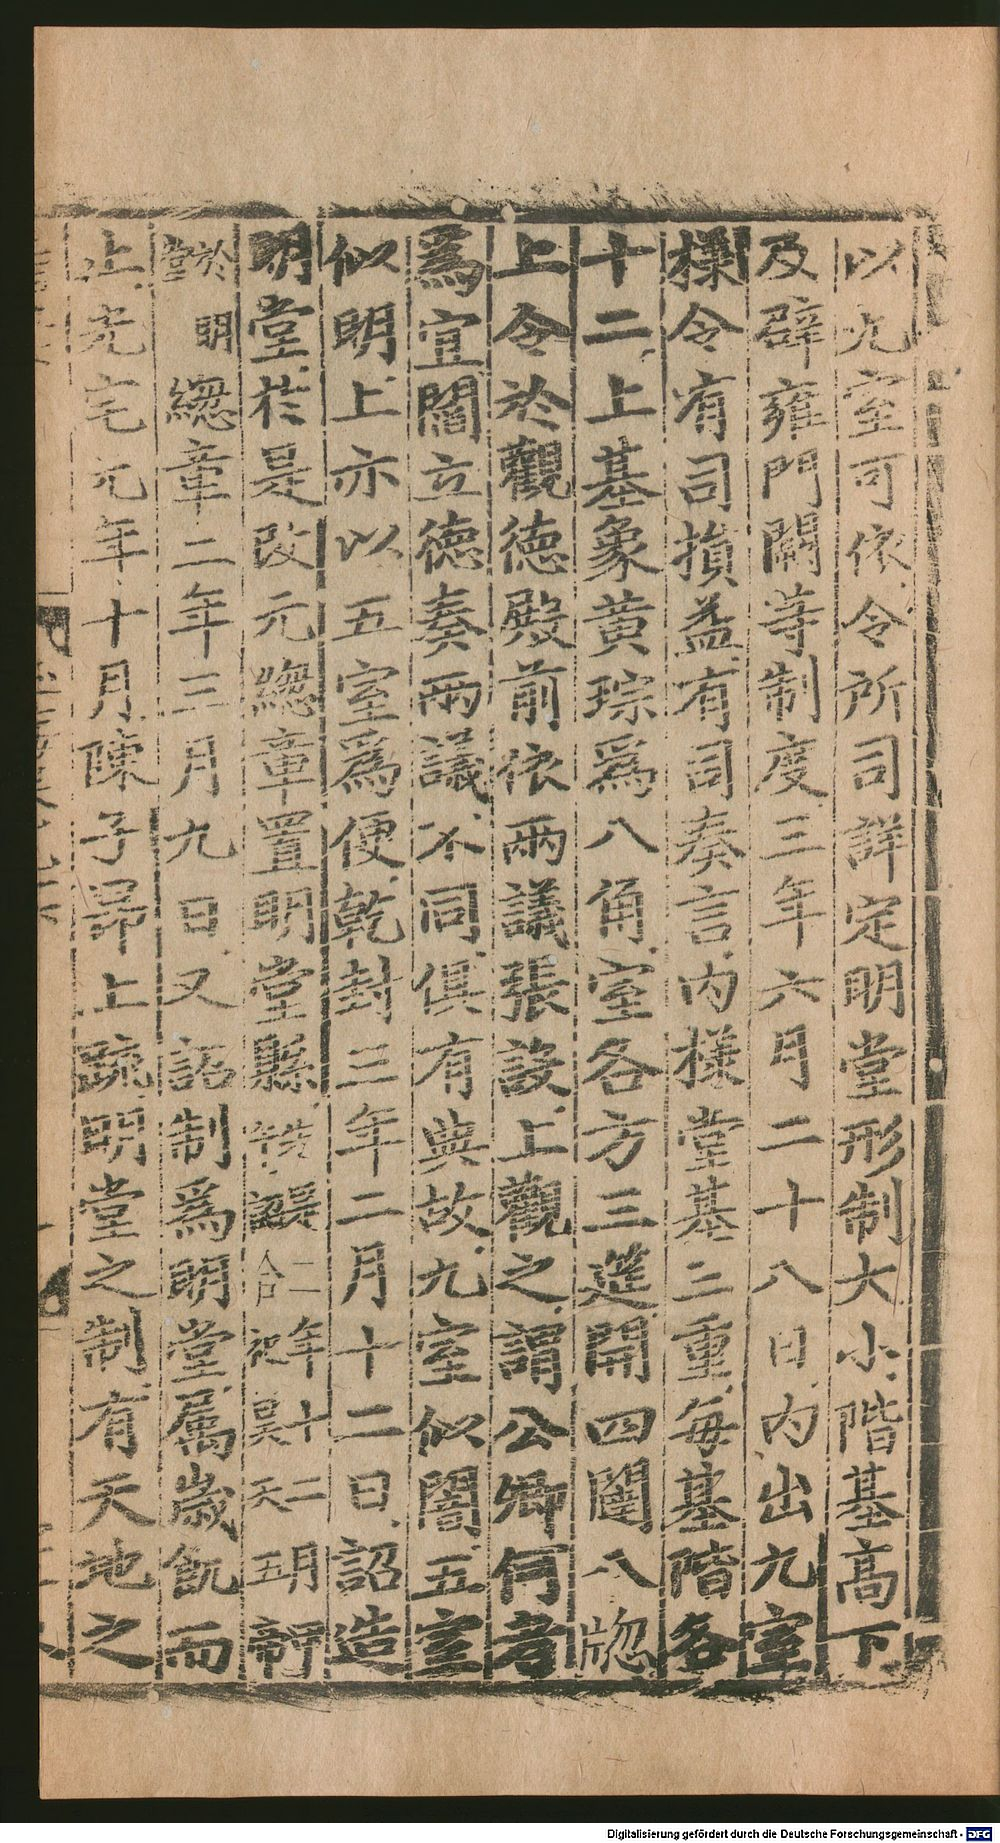 以九室可依令所司詳定明堂形制大小階基高下
及辟雍門闕等制度三年六月二十八日内出九室
樣令有司損益有司奏言内樣堂基三重毎基階各
十二上基象黄琮爲八角室各方三筵開四闥八牕
上令於觀徳殿前依兩議張設上觀之謂公卿何者
爲宜閻立徳奏兩議不同俱有典故九室似闇五室
似明上亦以五室爲便乾封三年二月十二日詔造
明堂於是改元緫章置明堂縣二年十二月
合祀昊天五帝於明堂
緫章二年三月九日又詔制爲明堂属歳飢而
止光宅元年十月陳子昂上疏明堂之制有天地之
Digitalisierung gefördert durch die Deutsche Forschungsgemeinschaft - DFG